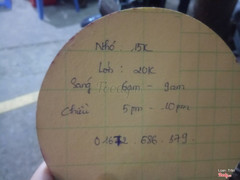 Nhỏ: 15K
Lớn: 20K
Sáng: 6am - 9am
Chiều 5pm - 10pm
01672.686.379